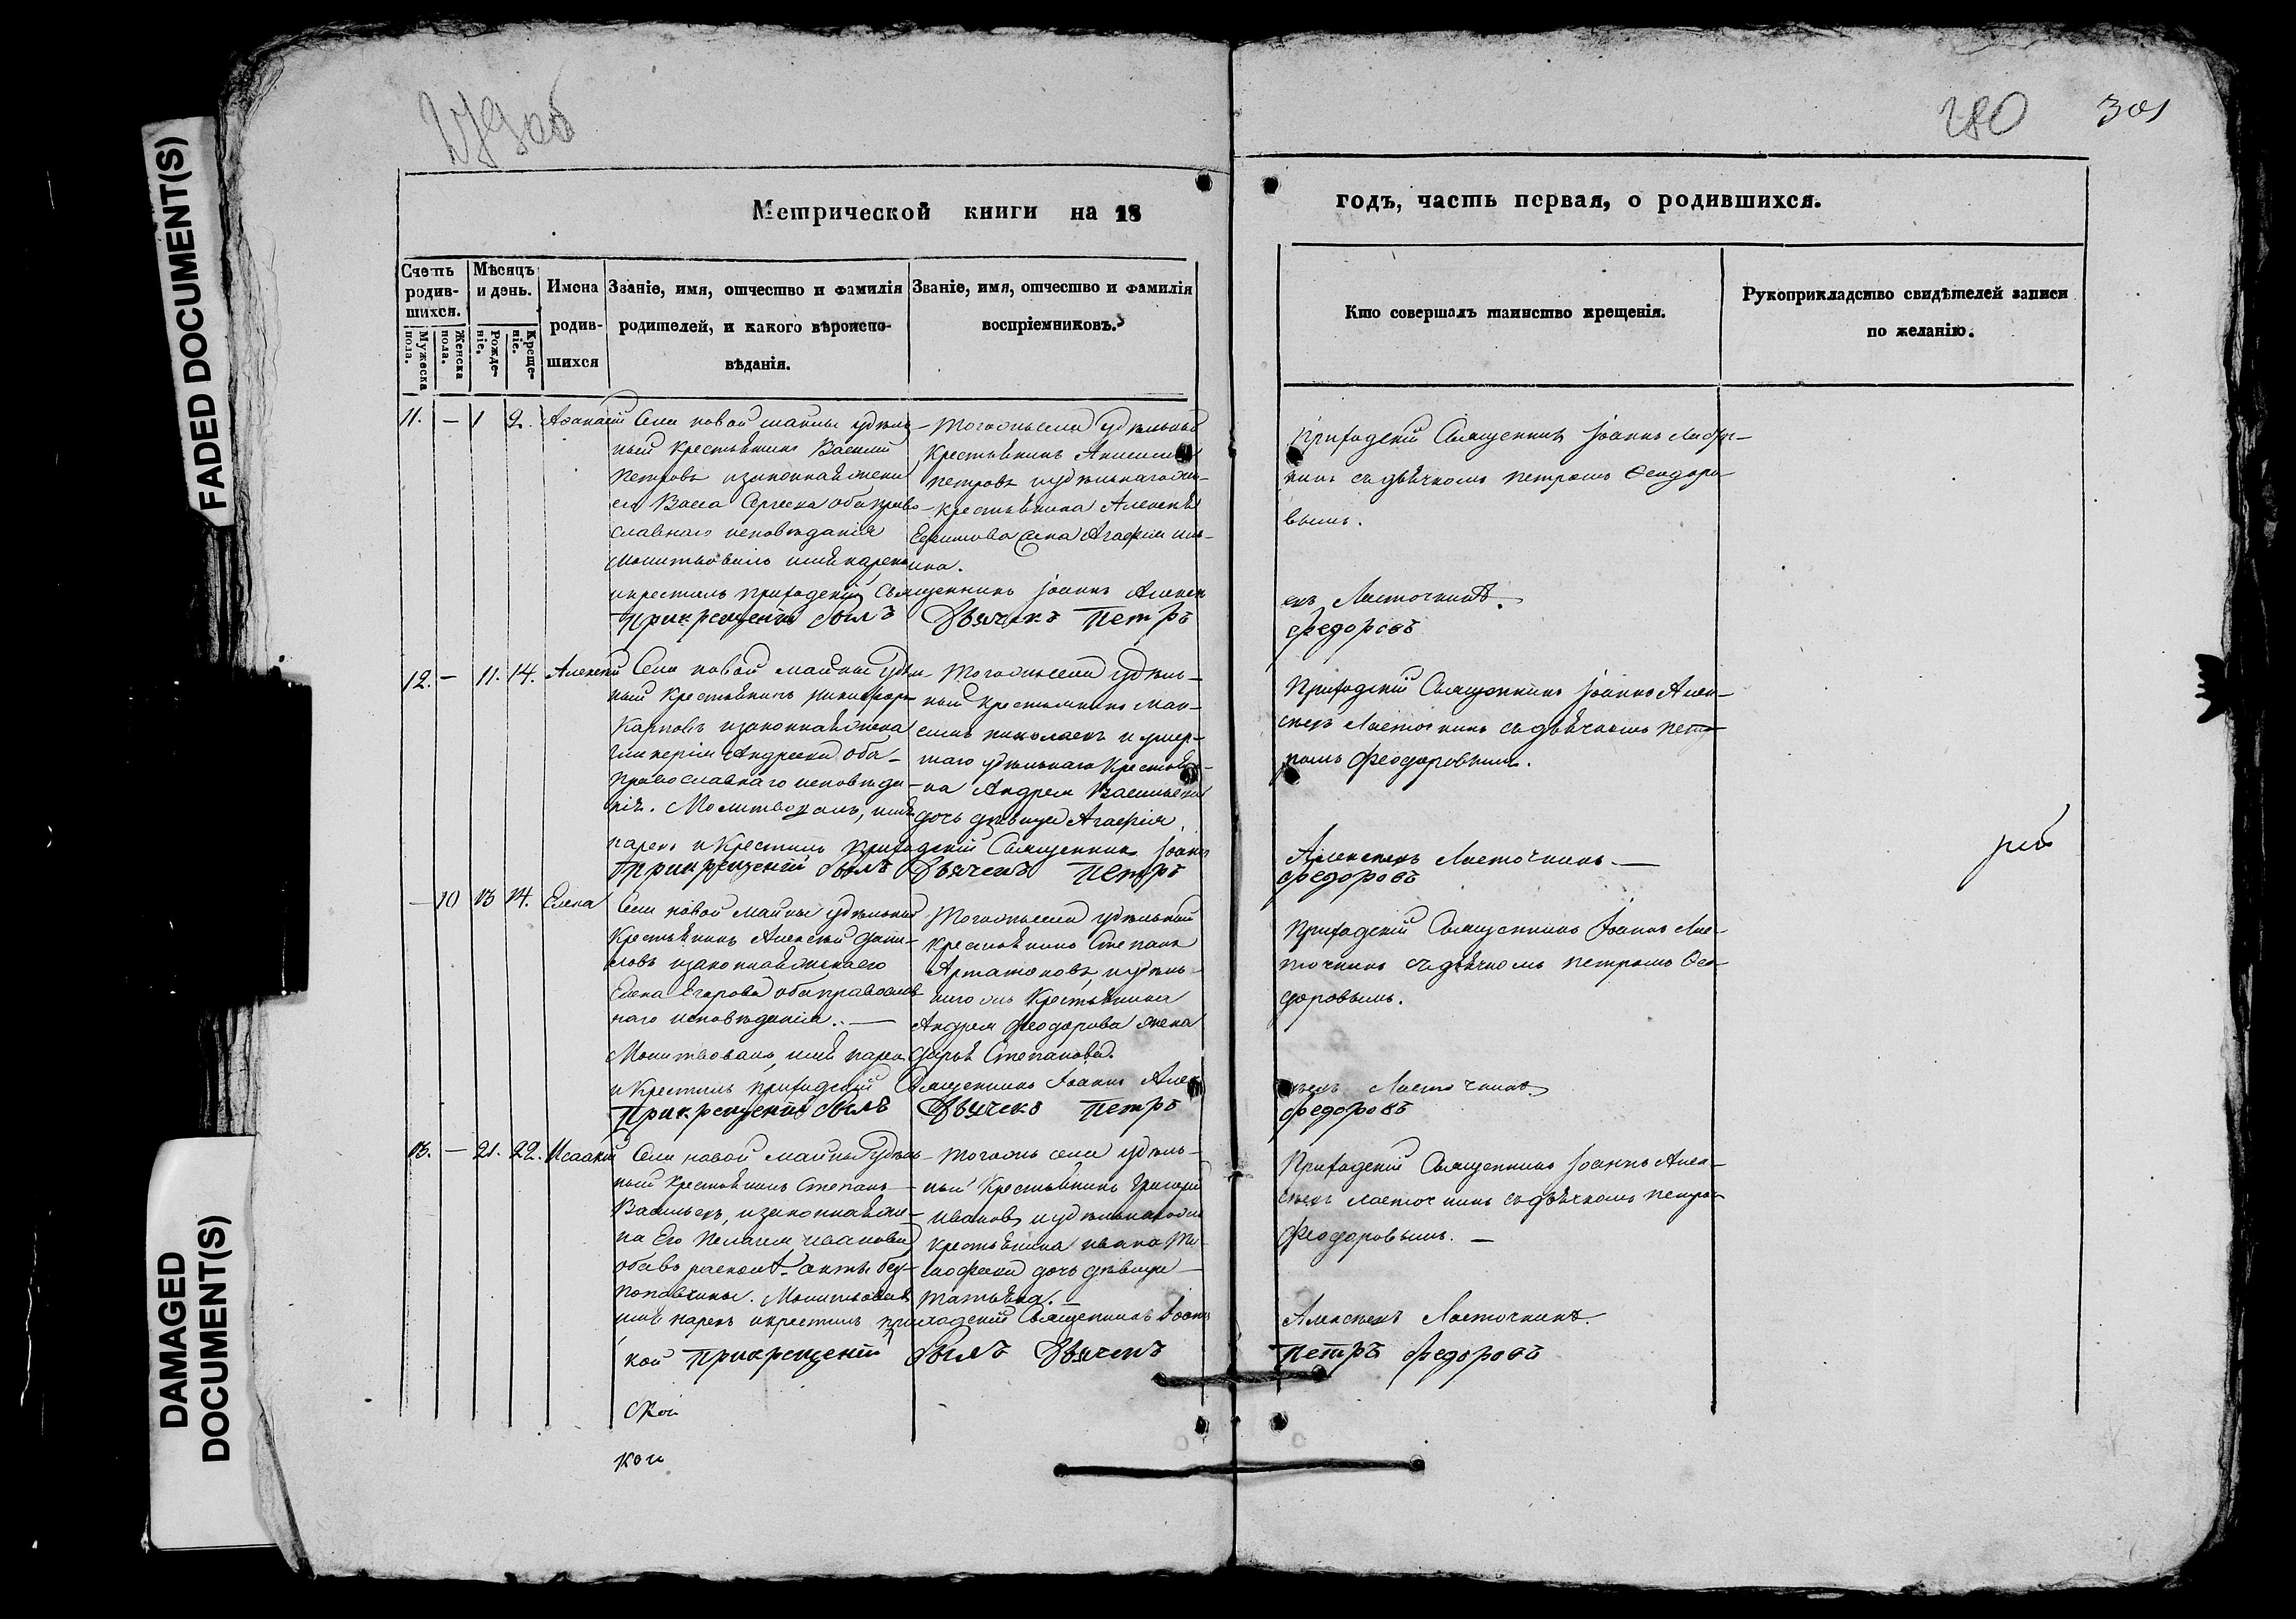 FADED DOCUMENT(S)
DAMAGED
DOCUMENT(S)
279 об
280
301
Метрической книги на 18
годъ, часть первая, о родившихся.
Счетъ родив-шихся.
Мужеска пола.
Женска пола.
Мѣсяцъ и день.
Рожде-ніе.
Креще-ніе.
Имена родив-шихся
Званіе, имя, отчество и фамилія
родителей, и какого вѣроиспо-
вѣданія.
Званіе, имя, отчество и фамилія
воспріемниковъ.
Кто совершалъ таинство крещенія.
Рукоприкладство свидѣтелей записи
по желанію.
11. — 1 2. Аѳанасій
Села новой маины удѣль-
ный крестьянинъ Василій
Петровъ и законная жена
его Васса Сергеева оба право-
славнаго исповѣданія
Молитвовалъ имя нареклъ
и крестилъ приходскій Священникъ Іоаннъ Алексѣ
При крещеніи былъ Дьячекъ Петръ
Тогоже села удѣльный
Крестьянинъ
Петровъ и удѣльнаго
крестьянина Алексѣя
Ефимова жена Агафія
Приходскій Священникъ Іоаннъ Ласто-
чкинъ съ дьячкомъ Петромъ Ѳеодоро
вымъ.
евъ Ласточкинъ.
Федоровъ
12. — 11. 14. Алексѣй
Села новой маины удѣль-
ный Крестьянинъ Никифоръ
Карповъ и законная жена
Гликерія Андреева оба
православнаго исповѣда-
нія. Молитвовалъ, имя
нарекъ и Крестилъ Приходскій Священникъ Іоаннъ
При крещеніи былъ Дьячекъ Петръ
Тогоже села удѣль-
ный крестьянинъ Мак-
симъ Николаевъ и умер-
шаго удѣльнаго Крестьяни-
на Андрея Васильева
дочь дѣвица Агафія.
Приходскій Священникъ Іоаннъ Алек-
сѣевъ Ласточкинъ съ дьячкомъ Пет-
ромъ Феодоровымъ.
Алексѣевъ Ласточкинъ. —
Федоровъ
— 10 13 14. Елена
Села новой маины удѣльный
Крестьянинъ Алексѣй Дани-
ловъ и законная жена его
Елена Егорова оба православ
наго исповѣданія. —
Молитвовалъ, имя нарекъ
и Крестилъ приходскій Священникъ Іоаннъ Алек
При крещеніи былъ Дьячекъ Петръ
Тогоже села удѣльный
крестьянинъ Степанъ
Артамоновъ, и удѣль-
наго Крестьянина
Андрея Феодорова жена
Дарья Степанова.
Приходскій Священникъ Іоаннъ Лас-
точкинъ съ дьячкомъ Петромъ Ѳео-
доровымъ.
сѣевъ Ласточкинъ
Федоровъ
13. — 21. 22. Исаакій
Села новой маины удѣль-
ный крестьянинъ Степанъ
Васильевъ, и законная же-
на Его Пелагея Иванова
оба въ расколѣ секты без-
поповщины. Молитвовалъ
имя нарекъ и крестилъ приходскій Священникъ Іоаннъ
кой При крещеніи былъ Дьячекъ
Тогоже села удѣль-
ный Крестьянинъ Григорій
Ивановъ и удѣльнаго
крестьянина Ивана Ти-
мофеева дочь дѣвица
Татьяна. —
Приходскій Священникъ Іоаннъ Алек-
сѣевъ Ласточкинъ съ дьячкомъ Петро
Феодоровымъ. —
Алексѣевъ Ласточкинъ.
Петръ Федоровъ